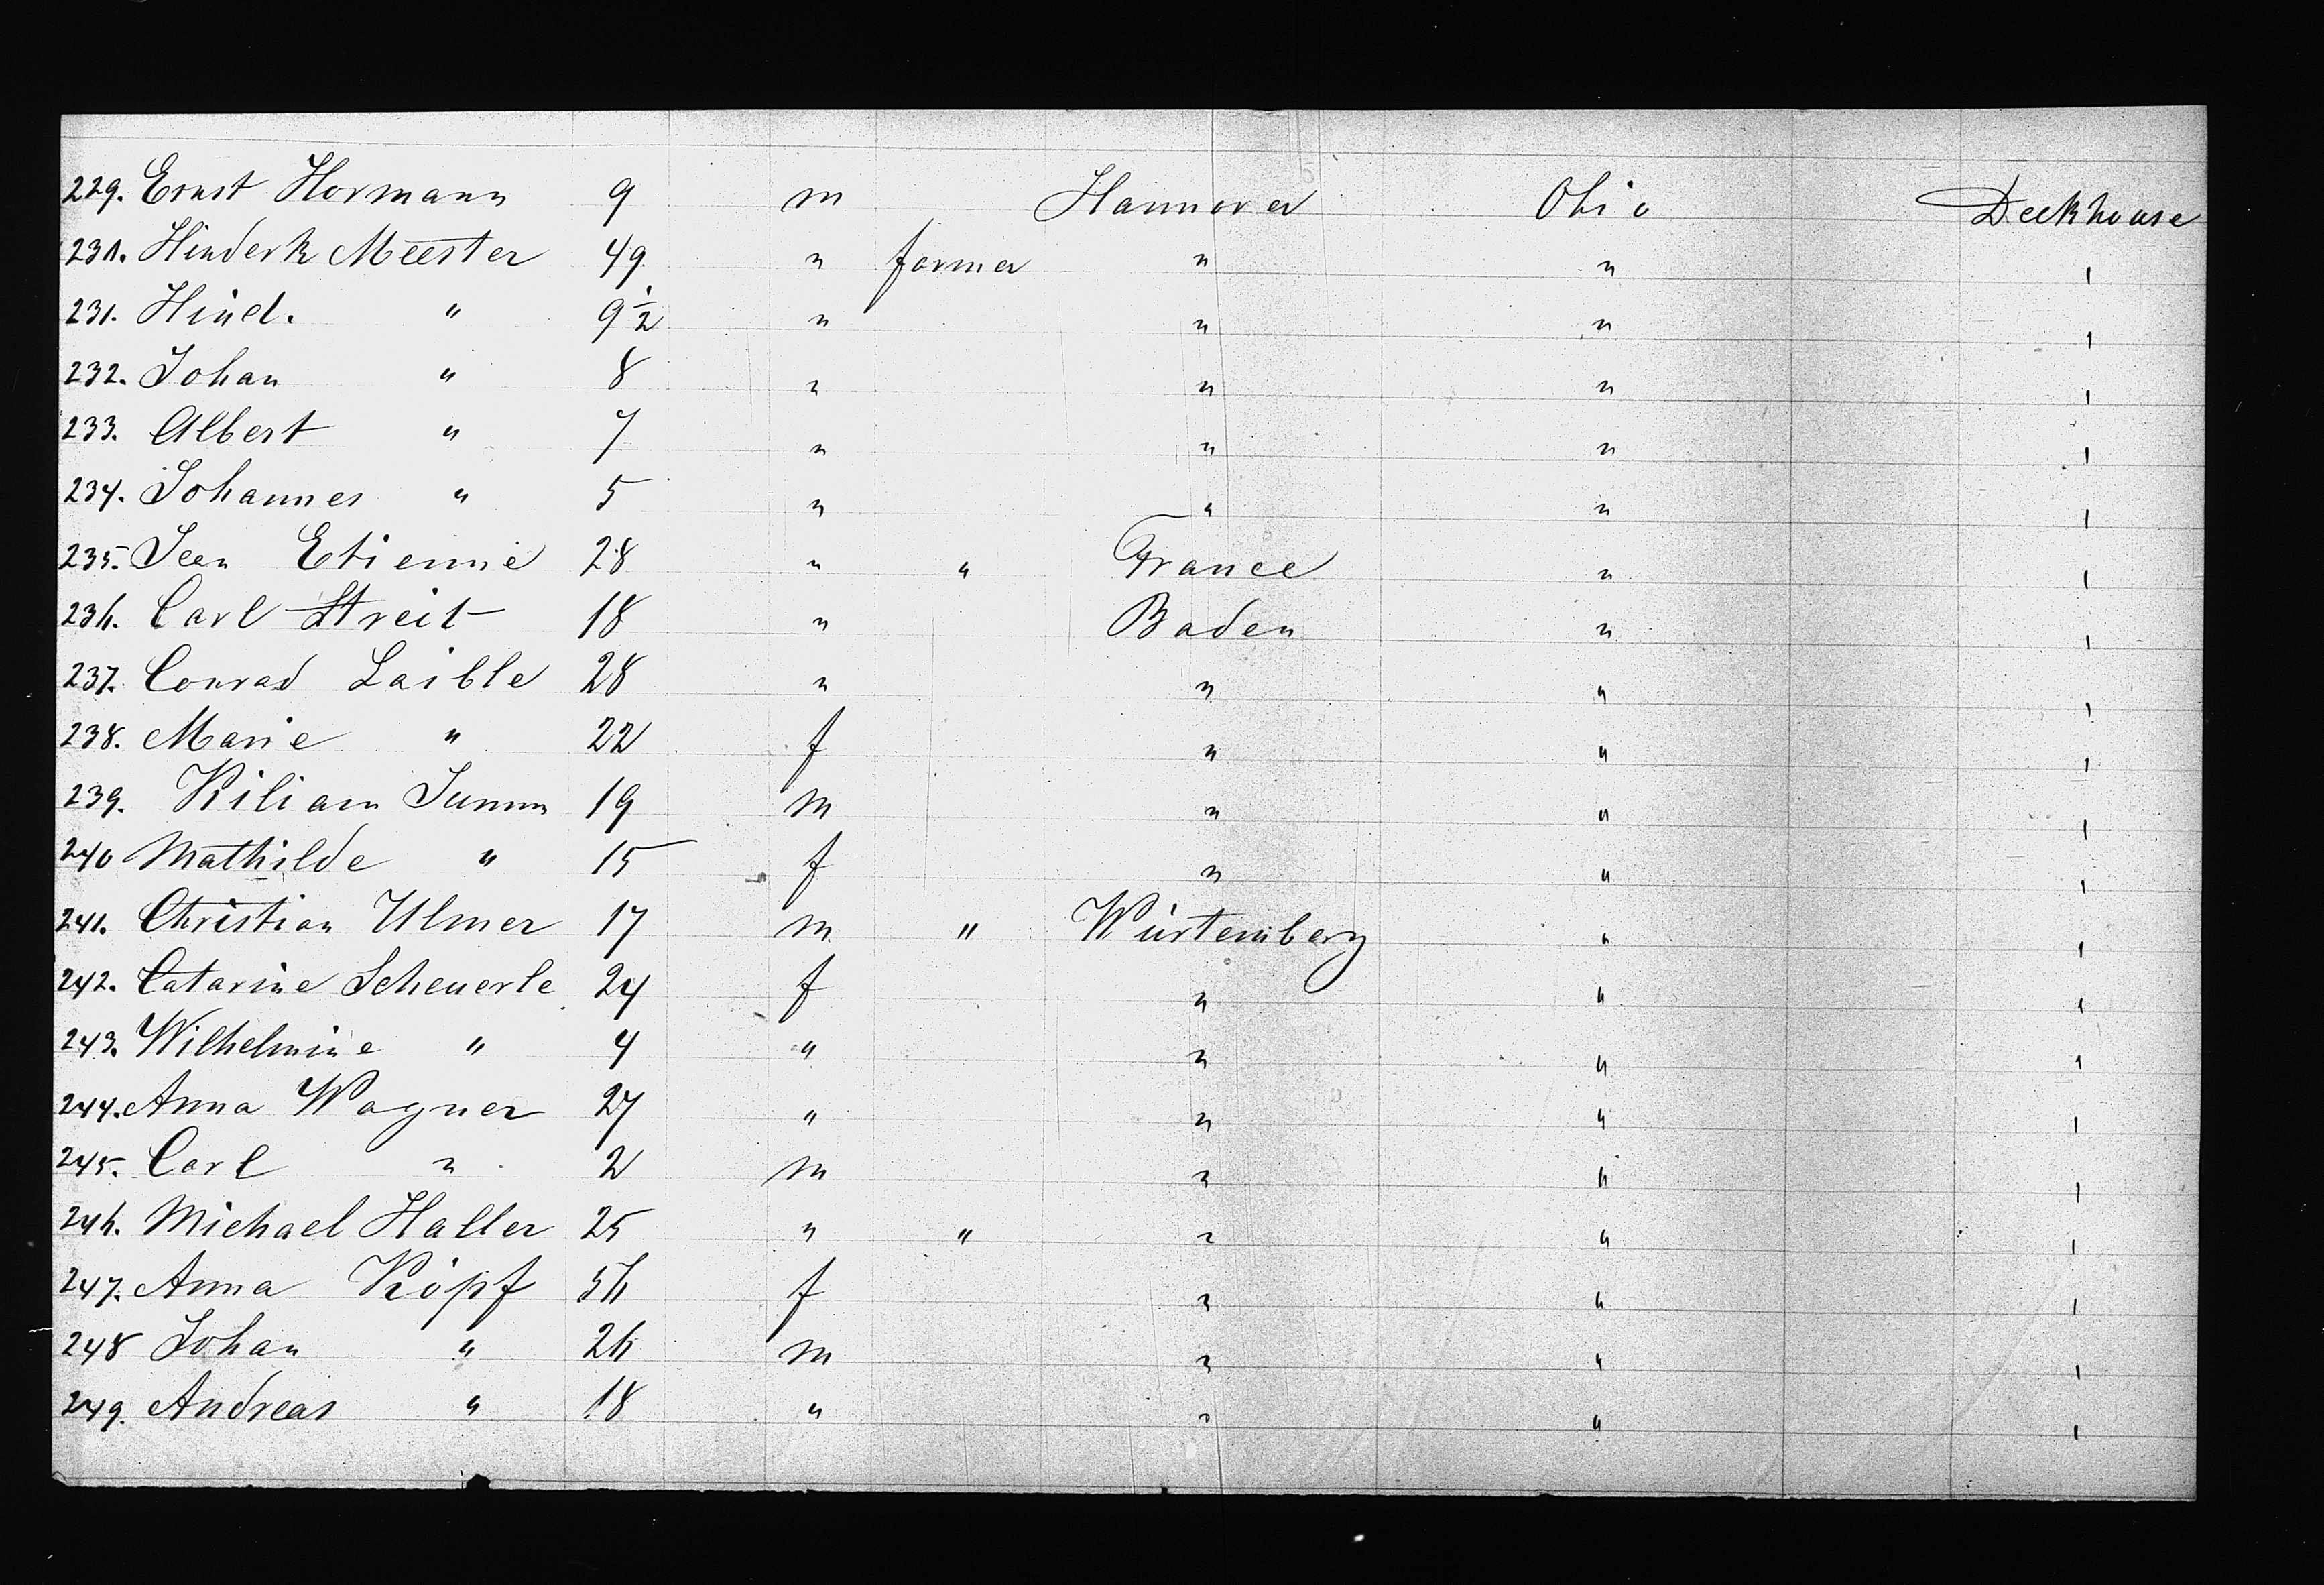 229. Ernst Hormann 9 m Hannover Ohio Deckhouse
230. Hinderk Meester 49 " farmer " " "
231. Hind. " 9½ " " " "
232. Johan " 8 " " " "
233. Albert " 7 " " " "
234. Johannes " 5 " " " "
235. Jean Etienne 28 " " France " "
236. Carl Streit 18 " Baden " "
237. Conrad Laible 28 " " " "
238. Marie " 22 f " " "
239. Kilian Summ 19 m " " "
240 Mathilde " 15 f " " "
241. Christian Ulmer 17 m " Würtemberg " "
242. Catarine Scheuerle 24 f " " "
243. Wilhelmine " 4 " " " "
244. Anna Wagner 27 " " " "
245. Carl " 2 m " " "
246. Michael Haller 25 " " " " "
247. Anna Köpf 56 f " " "
248 Johan " 26 m " " "
249. Andreas " 18 " " " "